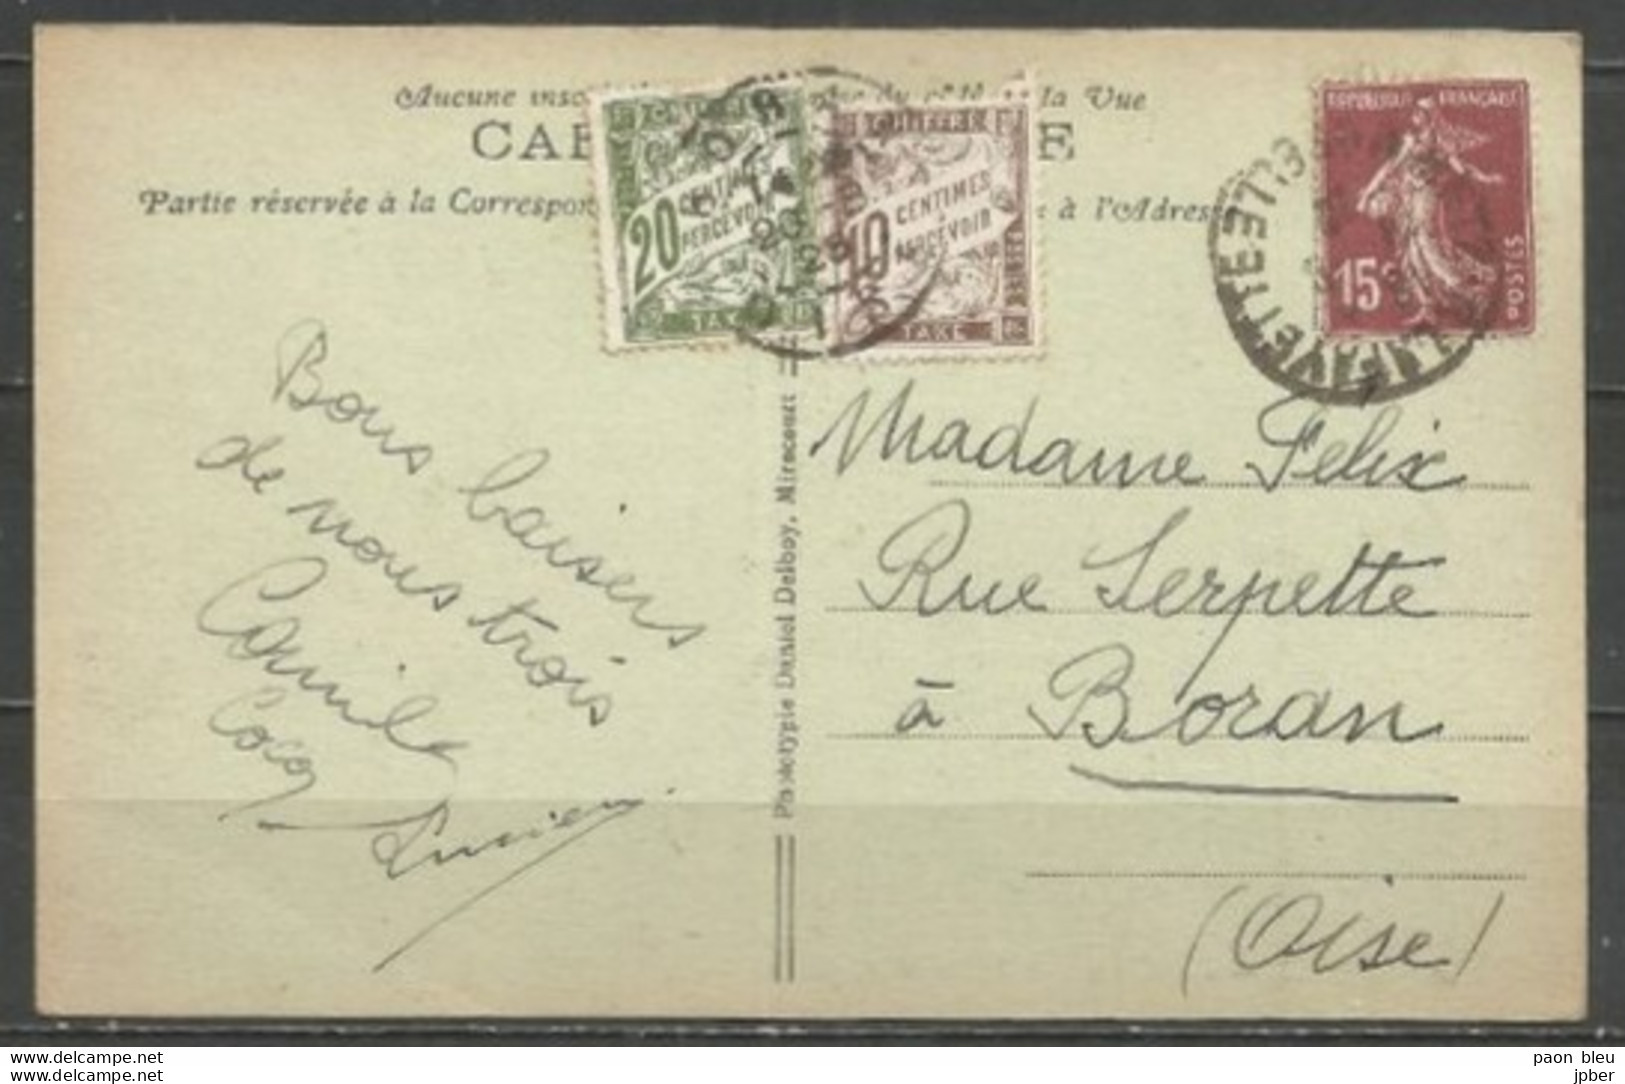 Aucune
la Vue
Partie réservée à la
à l'Adresse
CHIFFRE
20 CENTIMES À PERCEVOIR
TAXE
CHIFFRE
10 CENTIMES À PERCEVOIR
TAXE
RÉPUBLIQUE FRANÇAISE
15c
POSTES
Bons baisers
de nous trois
Camille
Coco
Lucien
Phototypie Daniel Delboy, Mirecourt
Madame Felix
Rue Serpette
à Boran
(Oise)
www.delcampe.net
www.delcampe.net
paon bleu
jpber